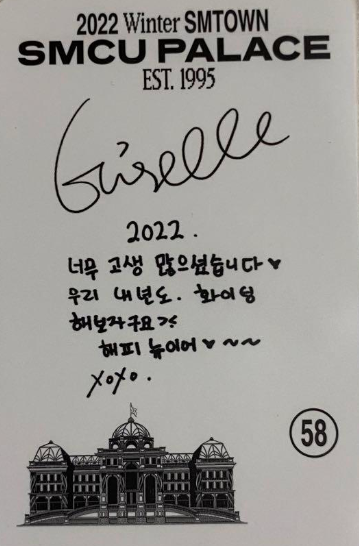 2022 Winter SMTOWN
SMCU PALACE
EST. 1995
Giselle
2022.
너무 고생 많으셨습니다♥
우리 내년도. 화이팅
해보자구요>.<
해피 뉴이어♥~~
xoxo.
58